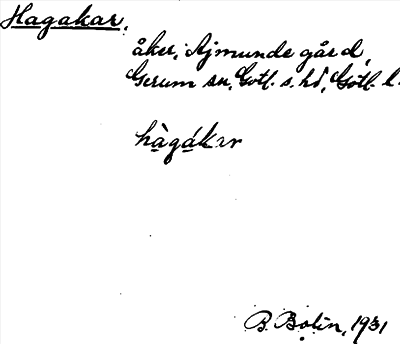 Hagakar.
åker, Ajmunde gård,
Gerum sn, Gotl. s. hd, Gotl. l.
hàgákɪr
B. Bolin, 1931